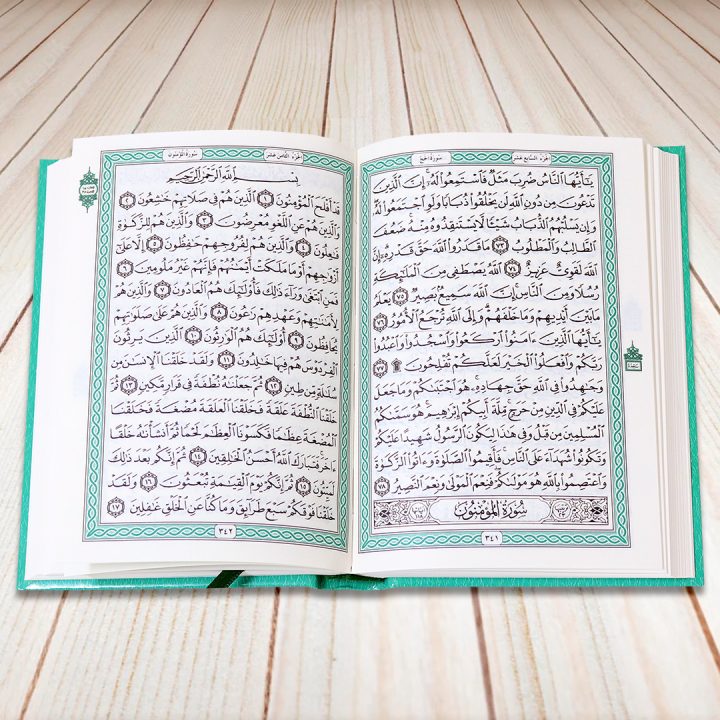 سورة الحج
الجزء السابع عشر
يَٰٓأَيُّهَا ٱلنَّاسُ ضُرِبَ مَثَلٌ فَٱسْتَمِعُوا۟ لَهُۥٓ ۚ إِنَّ ٱلَّذِينَ
تَدْعُونَ مِن دُونِ ٱللَّهِ لَن يَخْلُقُوا۟ ذُبَابًا وَلَوِ ٱجْتَمَعُوا۟ لَهُۥ ۖ
وَإِن يَسْلُبْهُمُ ٱلذُّبَابُ شَيْـًٔا لَّا يَسْتَنقِذُوهُ مِنْهُ ۚ ضَعُفَ
ٱلطَّالِبُ وَٱلْمَطْلُوبُ ٧٣ مَا قَدَرُوا۟ ٱللَّهَ حَقَّ قَدْرِهِۦٓ ۗ إِنَّ
ٱللَّهَ لَقَوِىٌّ عَزِيزٌ ٧٤ ٱللَّهُ يَصْطَفِى مِنَ ٱلْمَلَٰٓئِكَةِ
رُسُلًا وَمِنَ ٱلنَّاسِ ۚ إِنَّ ٱللَّهَ سَمِيعٌۢ بَصِيرٌ ٧٥ يَعْلَمُ
مَا بَيْنَ أَيْدِيهِمْ وَمَا خَلْفَهُمْ ۗ وَإِلَى ٱللَّهِ تُرْجَعُ ٱلْأُمُورُ ٧٦
يَٰٓأَيُّهَا ٱلَّذِينَ ءَامَنُوا۟ ٱرْكَعُوا۟ وَٱسْجُدُوا۟ وَٱعْبُدُوا۟
رَبَّكُمْ وَٱفْعَلُوا۟ ٱلْخَيْرَ لَعَلَّكُمْ تُفْلِحُونَ ۩ ٧٧
وَجَٰهِدُوا۟ فِى ٱللَّهِ حَقَّ جِهَادِهِۦ ۚ هُوَ ٱجْتَبَىٰكُمْ وَمَا جَعَلَ
عَلَيْكُمْ فِى ٱلدِّينِ مِنْ حَرَجٍ ۚ مِّلَّةَ أَبِيكُمْ إِبْرَٰهِيمَ ۚ هُوَ سَمَّىٰكُمُ
ٱلْمُسْلِمِينَ مِن قَبْلُ وَفِى هَٰذَا لِيَكُونَ ٱلرَّسُولُ شَهِيدًا عَلَيْكُمْ
وَتَكُونُوا۟ شُهَدَآءَ عَلَى ٱلنَّاسِ ۚ فَأَقِيمُوا۟ ٱلصَّلَوٰةَ وَءَاتُوا۟ ٱلزَّكَوٰةَ
وَٱعْتَصِمُوا۟ بِٱللَّهِ هُوَ مَوْلَىٰكُمْ ۖ فَنِعْمَ ٱلْمَوْلَىٰ وَنِعْمَ ٱلنَّصِيرُ ٧٨
سُورَةُ المُؤْمِنُونَ
٣٤١
الجزء الثامن عشر
سورة المؤمنون
بِسْمِ ٱللَّهِ ٱلرَّحْمَٰنِ ٱلرَّحِيمِ
قَدْ أَفْلَحَ ٱلْمُؤْمِنُونَ ١ ٱلَّذِينَ هُمْ فِى صَلَاتِهِمْ خَٰشِعُونَ ٢
وَٱلَّذِينَ هُمْ عَنِ ٱللَّغْوِ مُعْرِضُونَ ٣ وَٱلَّذِينَ هُمْ لِلزَّكَوٰةِ
فَٰعِلُونَ ٤ وَٱلَّذِينَ هُمْ لِفُرُوجِهِمْ حَٰفِظُونَ ٥ إِلَّا عَلَىٰٓ
أَزْوَٰجِهِمْ أَوْ مَا مَلَكَتْ أَيْمَٰنُهُمْ فَإِنَّهُمْ غَيْرُ مَلُومِينَ ٦
فَمَنِ ٱبْتَغَىٰ وَرَآءَ ذَٰلِكَ فَأُو۟لَٰٓئِكَ هُمُ ٱلْعَادُونَ ٧ وَٱلَّذِينَ هُمْ
لِأَمَٰنَٰتِهِمْ وَعَهْدِهِمْ رَٰعُونَ ٨ وَٱلَّذِينَ هُمْ عَلَىٰ صَلَوَٰتِهِمْ
يُحَافِظُونَ ٩ أُو۟لَٰٓئِكَ هُمُ ٱلْوَٰرِثُونَ ١٠ ٱلَّذِينَ يَرِثُونَ
ٱلْفِرْدَوْسَ هُمْ فِيهَا خَٰلِدُونَ ١١ وَلَقَدْ خَلَقْنَا ٱلْإِنسَٰنَ مِن
سُلَٰلَةٍ مِّن طِينٍ ١٢ ثُمَّ جَعَلْنَٰهُ نُطْفَةً فِى قَرَارٍ مَّكِينٍ ١٣ ثُمَّ
خَلَقْنَا ٱلنُّطْفَةَ عَلَقَةً فَخَلَقْنَا ٱلْعَلَقَةَ مُضْغَةً فَخَلَقْنَا
ٱلْمُضْغَةَ عِظَٰمًا فَكَسَوْنَا ٱلْعِظَٰمَ لَحْمًا ثُمَّ أَنشَأْنَٰهُ خَلْقًا
ءَاخَرَ ۚ فَتَبَارَكَ ٱللَّهُ أَحْسَنُ ٱلْخَٰلِقِينَ ١٤ ثُمَّ إِنَّكُم بَعْدَ ذَٰلِكَ
لَمَيِّتُونَ ١٥ ثُمَّ إِنَّكُمْ يَوْمَ ٱلْقِيَٰمَةِ تُبْعَثُونَ ١٦ وَلَقَدْ
خَلَقْنَا فَوْقَكُمْ سَبْعَ طَرَآئِقَ وَمَا كُنَّا عَنِ ٱلْخَلْقِ غَٰفِلِينَ ١٧
٣٤٢